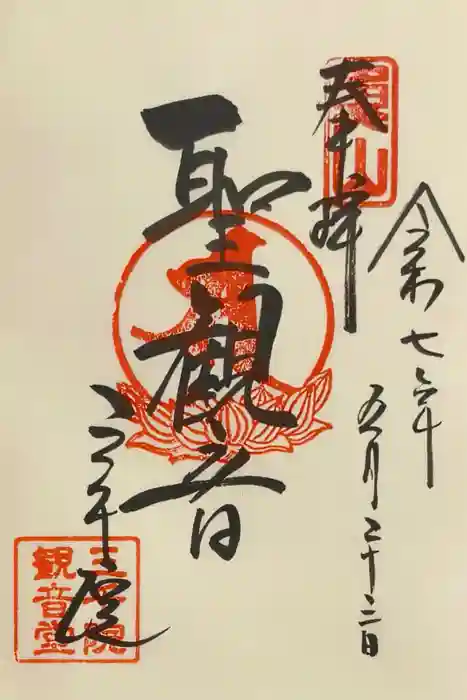 奉拝
令和七年
五月二十三日
聖観音
三千院
三千院
観音堂